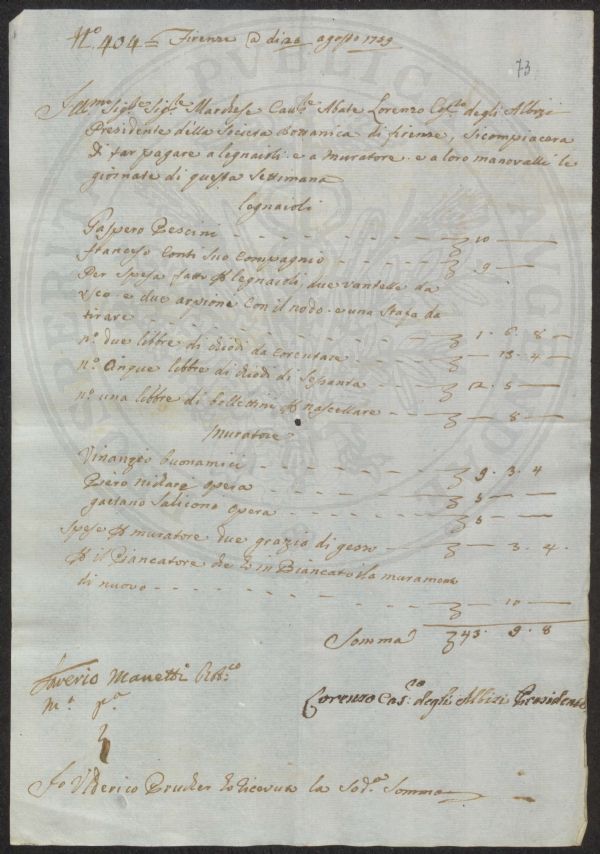 Nº. 404 = Firenze @ di 28 agosto 1759
73
Ill.mo Sig.re Sig.re Marchese Cau.re Abate Lorenzo Cas.to degli Albizi
Presidente della Società Bottanica di firenze, si compiacera
di far pagare a legnaioli e a Muratore e a loro manovalli le
giornate di questa Settimana
legnaioli
Gaspero Pescini - - - 10 —
francesco Conti Suo Compagnio - - - 9 —
Per Spesa fatta p legnaioli, due vantelle da
uscio e due arpione Con il nodo e una Stafa da
tirare - - - 1. 6. 8 —
nº. due libbre di chiodi da Correntare - - — 13. 4 —
nº. Cinque libbre di chiodi di Sesanta - - 12. 5 —
nº. una libbra di bollettini p - - — 8 —
Muratore
Vinanzio buonamici - - - 9. 3. 4
Piero opera - - -
gaetano opera - - -
Spese p muratore due grazia di gesso — — 3. 4.
p il Biancatore che
di nuovo - - - — 10 —
Somma 43. 9. 8
Saverio Manetti
M.º p.ª
Lorenzo Cas.to degli Albizi Presidente
Io Uderico Prucker ho ricevuto la Sod.ª Somma